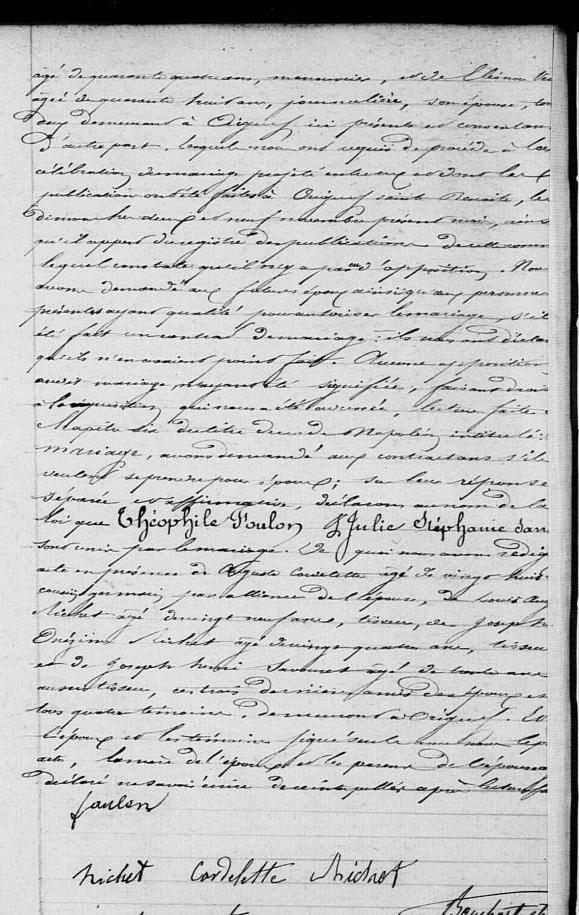 âgé de quarante quatre ans, manouvrier, et de Eléonore
âgée de quarante huit ans, journalière, son épouse, tous
deux demeurant à Origny ici présents et consentans
D'autre part, lesquels nous ont requis de procéder à la
célébration du mariage projeté entre eux et dont les
publications ont été faites à Origny Sainte Benoite, les
dimanches deux et neuf novembre présent mois, ainsi
qu'il appert du registre des publications de cette commune
lequel constate qu'il n'y a pas eu d'opposition. Nous
avons demandé aux futurs époux ainsi qu'aux personnes
présentes ayant qualité pour autoriser le mariage, s'il
été fait un contrat de mariage : ils nous ont déclaré
qu'ils n'en avaient point fait. Aucune opposition
audit mariage n'ayant été signifiée, faisant droit
à la réquisition qui nous a été adressée, lecture faite
chapitre six du titre du code Napoléon intitulé :
mariage, avons demandé aux contractans s'ils
veulent se prendre pour époux ; sur leur réponse
séparée et affirmative, déclarons au nom de la
loi que Théophile Foulon & Julie Stéphanie
sont unis par le mariage. De quoi nous avons rédigé
acte en présence de Auguste Cordelette âgé de vingt huit
cousin germain par alliance de l'épouse, de Louis
Michet âgé de vingt neuf ans, tisseur, de Joseph
Onézime Michet âgé de vingt quatre ans, tisseur
et de Joseph Henri âgé de trente ans
aussi tisseur, ces trois derniers amis des époux et
tous quatre témoins, demeurant à Origny. Et
l'époux et les témoins signé seuls avec nous le présent
acte, la mère de l'époux et les parens de l'épouse
déclaré ne savoir écrire de ce interpellés après lecture
foulon
Michet Cordelette Michet